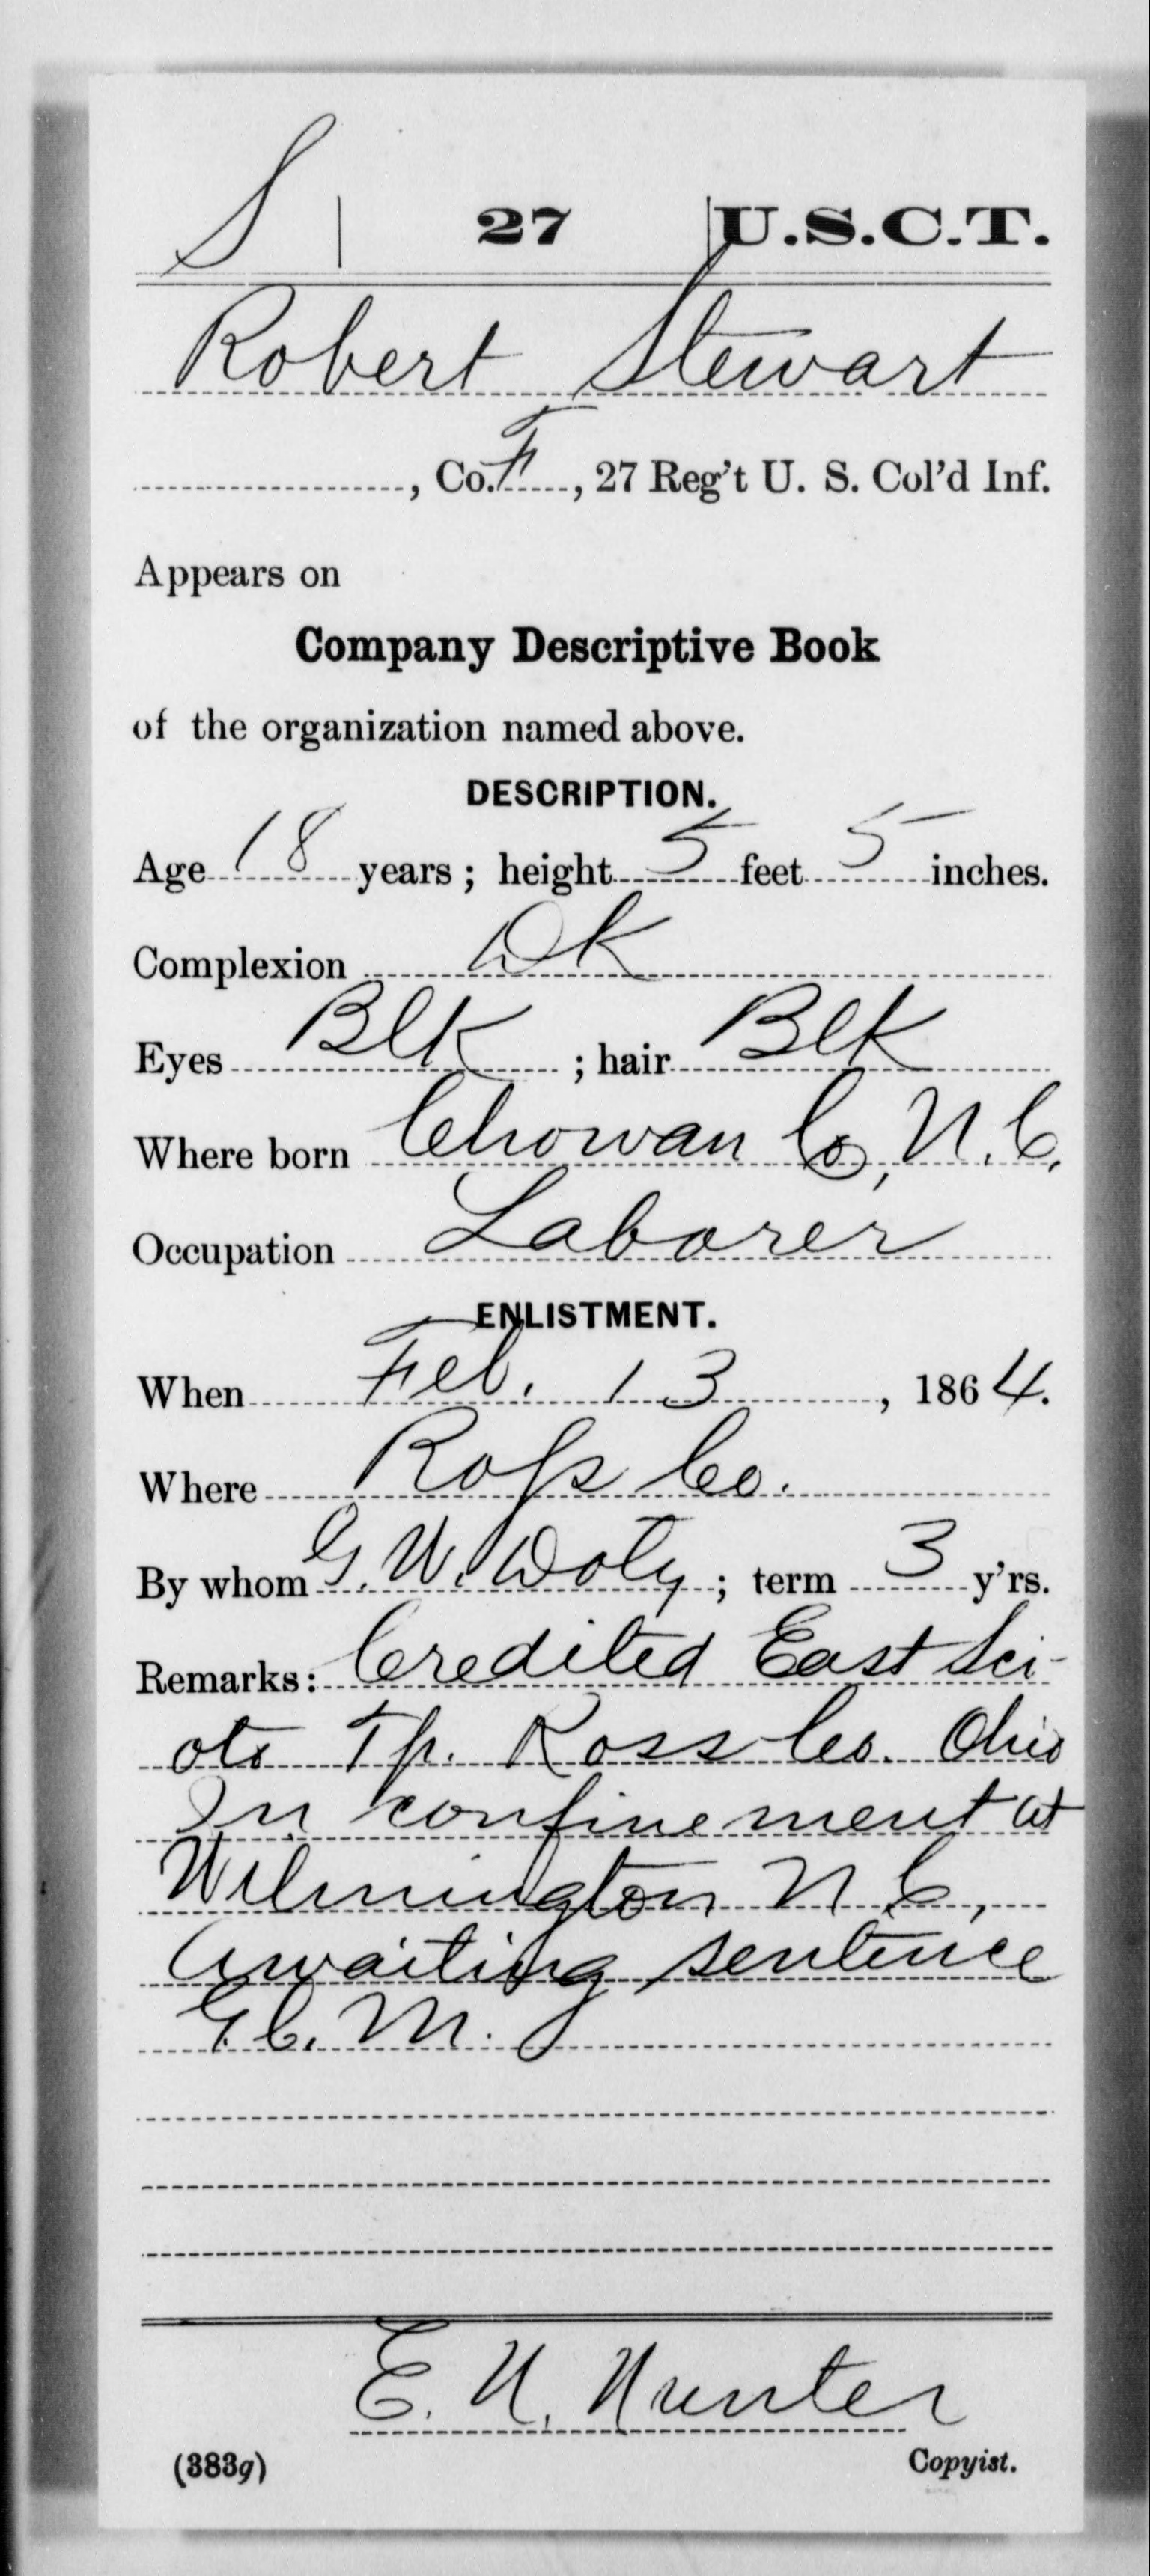 S | 27 | U.S.C.T.
Robert Stewart
, Co. F, 27 Reg't U. S. Col'd Inf.
Appears on
Company Descriptive Book
of the organization named above.
DESCRIPTION.
Age 18 years; height 5 feet 5 inches.
Complexion Dk
Eyes Blk; hair Blk
Where born Chowan Co, N.C.
Occupation Laborer
ENLISTMENT.
When Feb. 13, 1864.
Where Ross Co.
By whom G. W. Doty; term 3 y'rs.
Remarks: Credited East Sci-
oto Tp. Ross Co. Ohio
In confinement at
Wilmington N.C,
Awaiting sentence
G.C.M.
E. N. Hunter
(383g) Copyist.